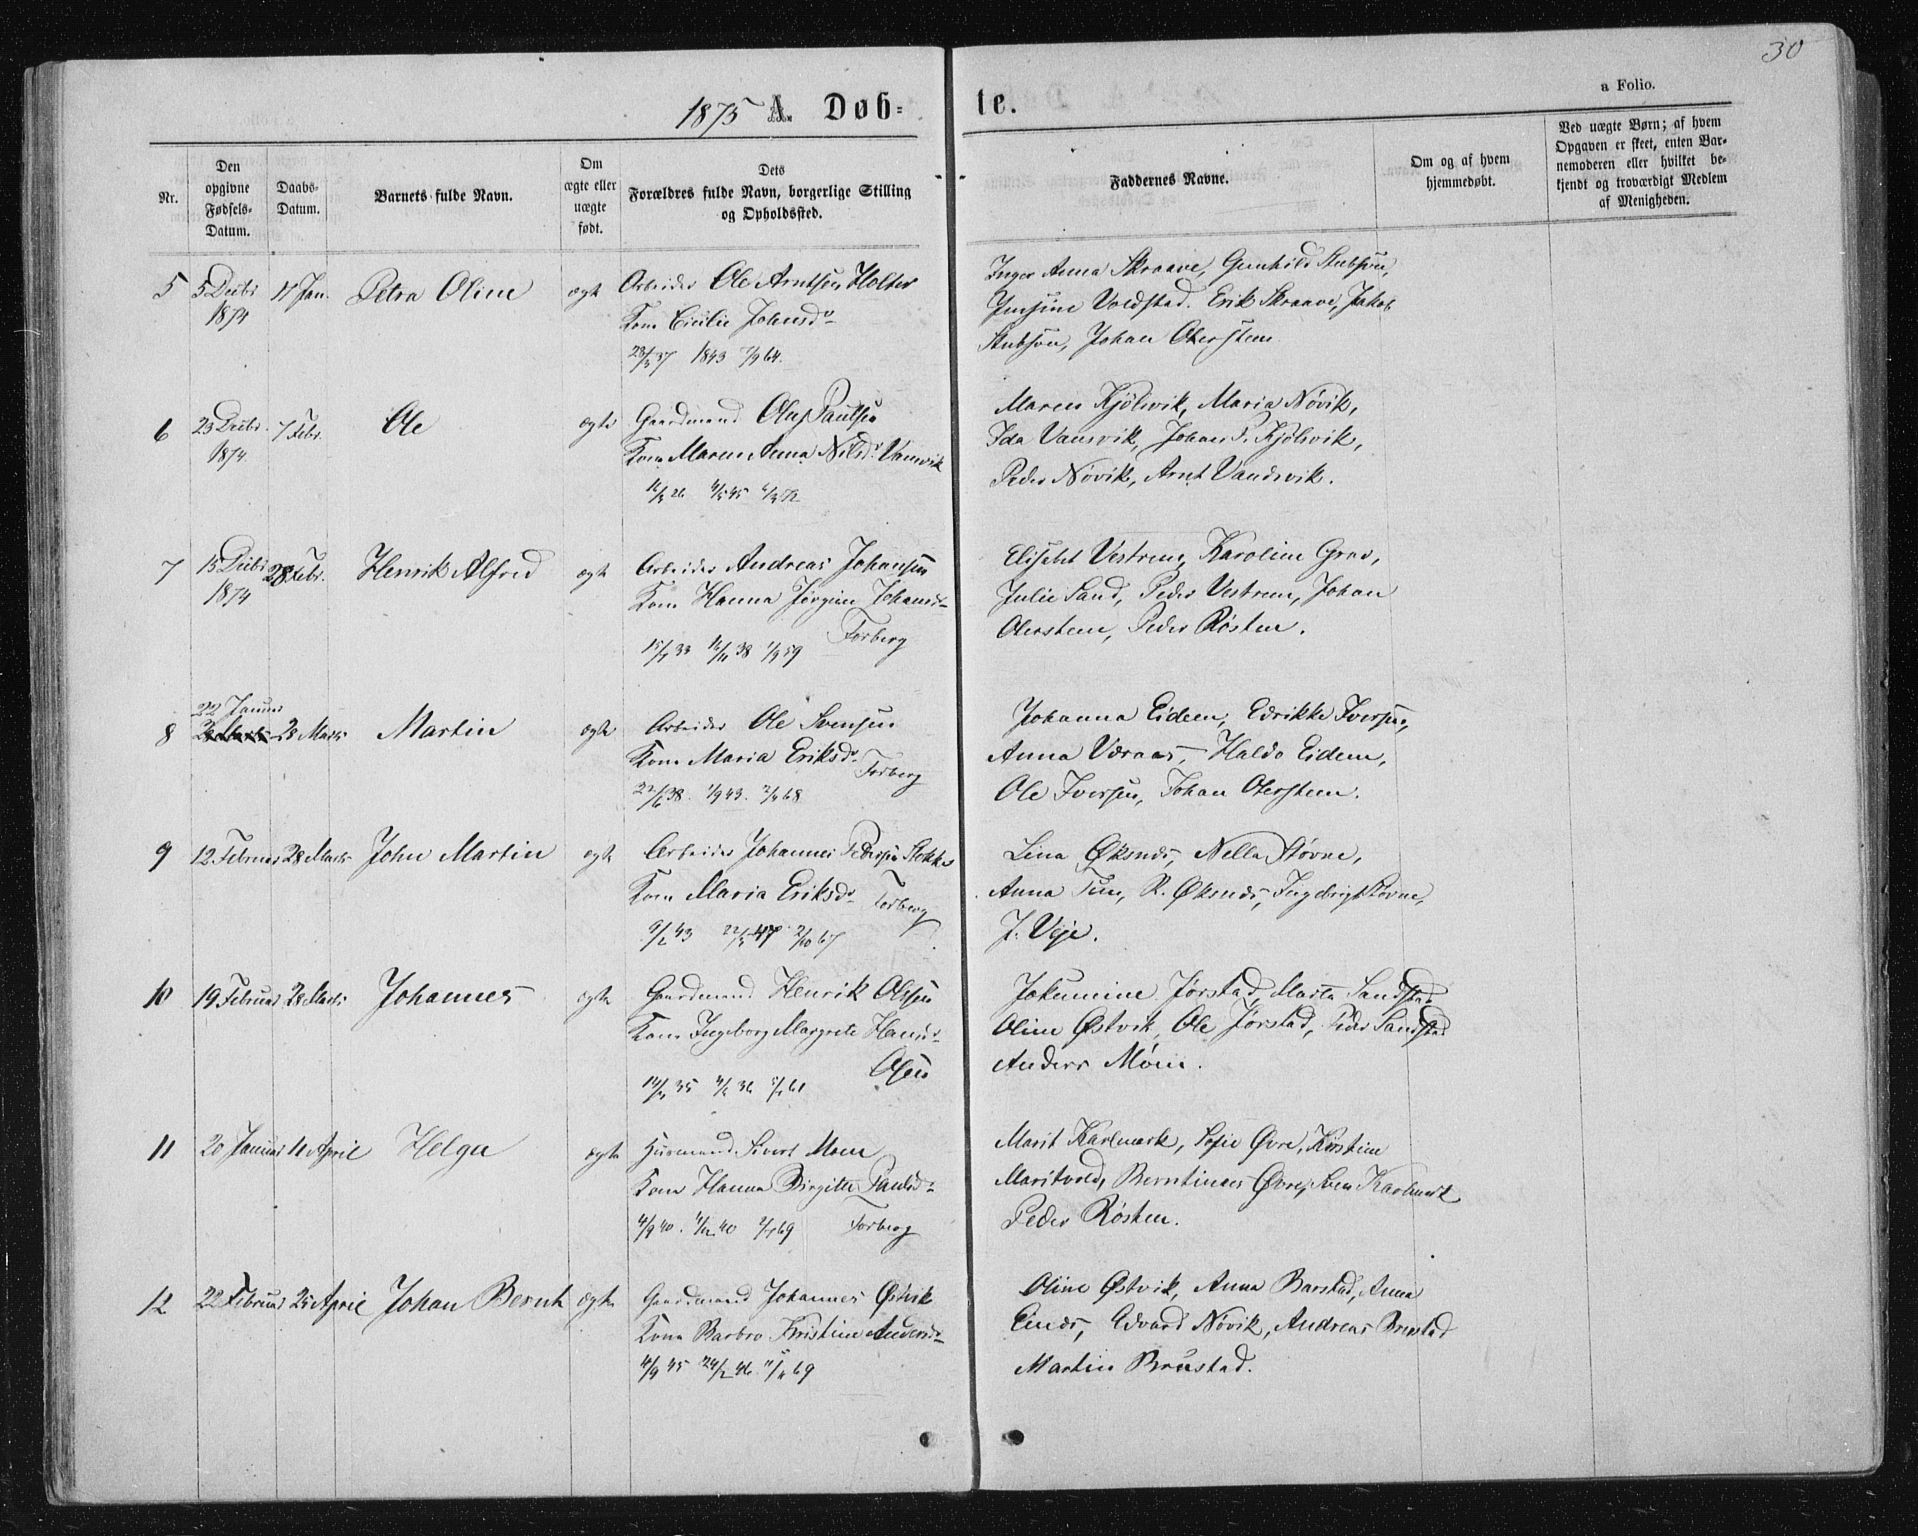 30
1875 A. Døb-te.
a Folio.
Nr.
Den opgivne Fødsels-Datum.
Daabs-Datum.
Barnets fulde Navn.
Om ægte eller uægte født.
Dets Forældres fulde Navn, borgerlige Stilling og Opholdssted.
Faddernes Navne.
Om og af hvem hjemmedøbt.
Ved uægte Børn; af hvem Opgaven er skeet, enten Barnemoderen eller hvilket bekjendt og troværdigt Medlem af Menigheden.
5 5 Decbr 17 Jan. Petra Oline ægte Arbeider Ole Arntsen Holter
1874 Kone Cicilie Johnsdr
1843 64.
Inger Anna Skraave, Gunhild Stubsou,
Jensine Voldstad. Erik Skraave, Jakob
Stubsou, Johan Oterstem
6 23 Decbr. 7 Febr. Ole ægte Gaardmand Ole Paulsen
1874 Kone Maren Anna Nilsdr Vansvik
Maren Kjølsvik, Maria Nøvik,
Ida Vansvik, Johan P. Kjølsvik,
Peder Nøvik, Arnt Vandsvik.
7 15 Decbr 28 Febr. Henrik Alfred ægte Arbeider Andreas Johansen
1874 Kone Hanna Jørgine Johansdr
Forberg
Elisabet Vestrem, Karoline Grav,
Julie Sand, Peder Vestrem, Johan
Oterstem, Peder Røsten.
8 22 Januar 28 Marts Martin ægte Arbeider Ole Svensen
Kone Maria Eriksdr Forberg
22/6 38. 1/9 43. 68
Johanna Eidem, Edrikke Iversen,
Anna Værnes, Haldo Eidem,
Ole Iversen, Johan Oterstem.
9 12 Februar 28 Marts John Martin ægte Arbeider Johannes Pedersen Stokke
Kone Maria Eriksdr Forberg
9/2 43 47 2/10 67
Lina Øksnes, Nella Støvne,
Anna Tun, R. Øksnes, Ingebrigt Støvne,
J. Veje.
10 19 Februar 28 Marts Johannes ægte Gaardmand Henrik Olssen
Kone Ingeborg Margrete Hansdr
Olsen
35 36 61
Jokumine Jørstad, Marta Sandstad
Oline Østvik, Ole Jørstad, Peder Sandstad
Anders Møen.
11 20 Januar 11 April Helga ægte Husmand Sivert Moen
Kone Hanna Birgitte Paulsdr
4/9 40. 40 69 Forberg
Marit Karlmark, Sofie Øvre, Kirstine
Maritvold, Berntinus Øvre, Sven Karlmark
Peder Røsten.
12 22 Februar 25 April Johan Bernt ægte Gaardmand Johannes Østvik
Kone Barbro Kristine Andersdr
4/9 45 24/2 46. 69
Oline Østvik, Anna Barstad, Anna
Eines, Edvard Nøvik, Andreas Brustad
Martin Brustad.